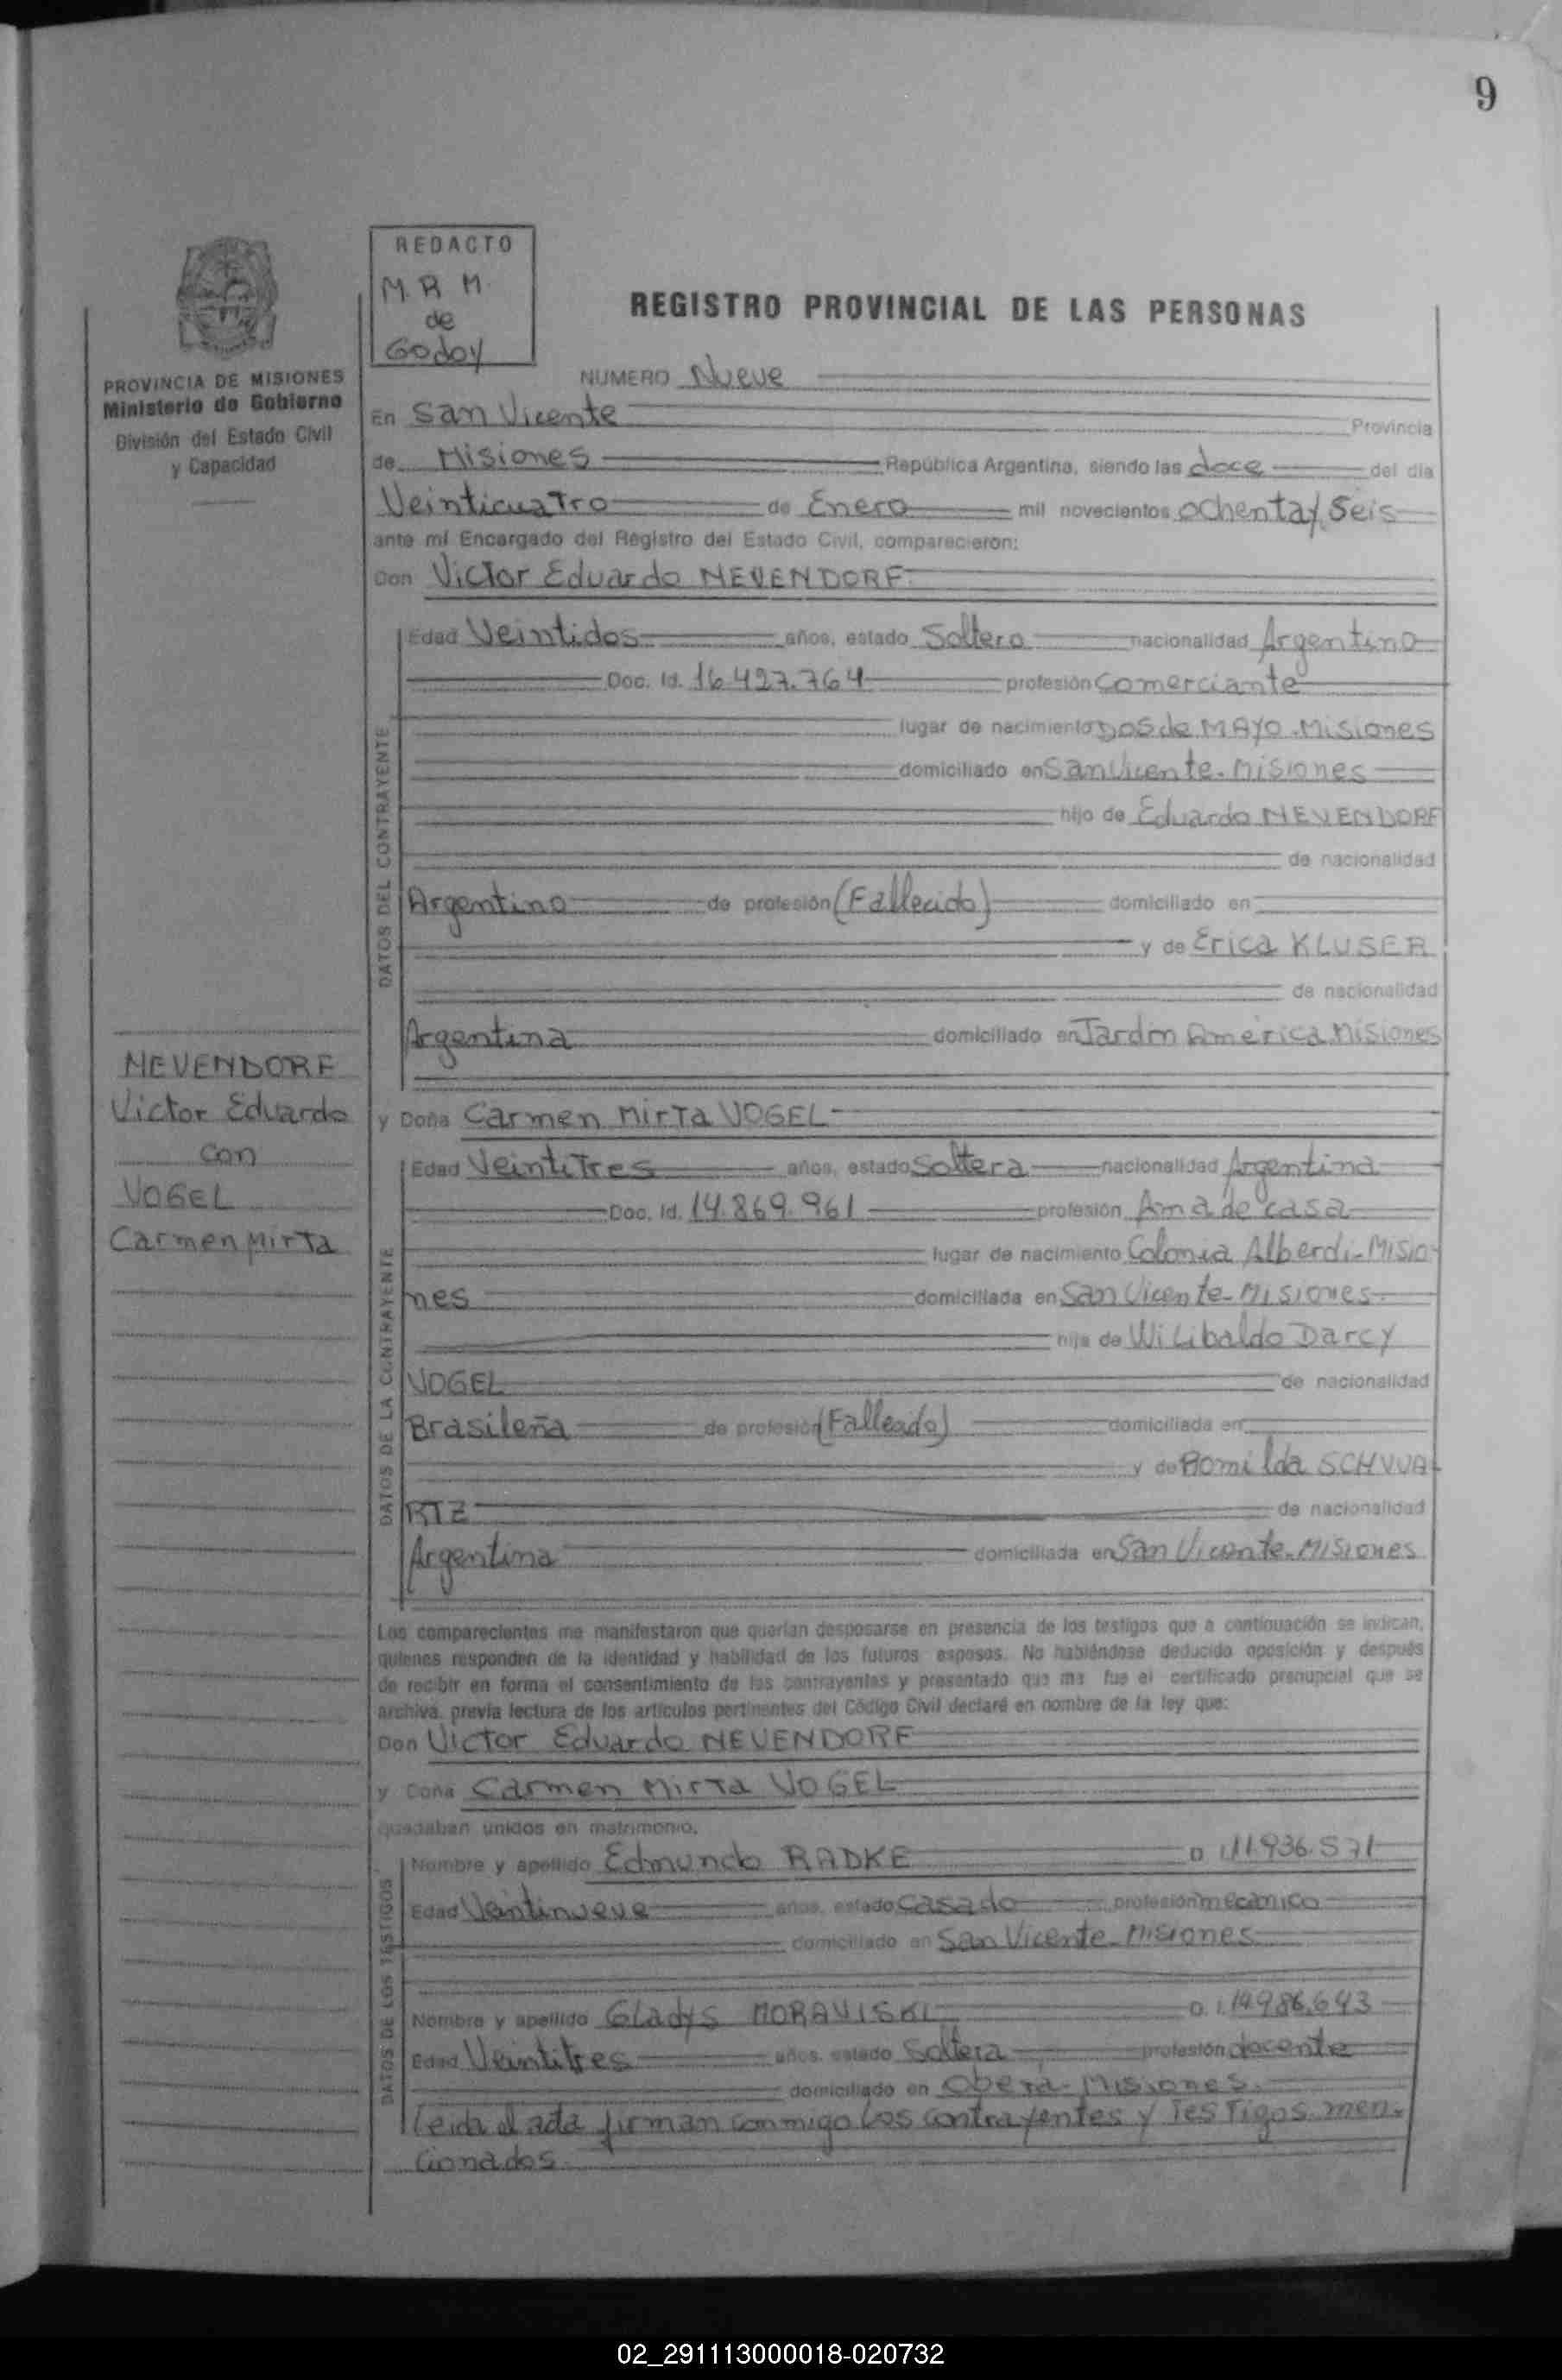 9
REDACTO
M. R M.
de
Godoy
REGISTRO PROVINCIAL DE LAS PERSONAS
PROVINCIA DE MISIONES
Ministerio de Gobierno
División del Estado Civil
y Capacidad
NUMERO Nueve
En San Vicente Provincia
de Misiones República Argentina, siendo las doce del dia
Veinticuatro de Enero mil novecientos ochenta y Seis
ante mí Encargado del Registro del Estado Civil, comparecieron:
Don Victor Eduardo NEVENDORF
DATOS DEL CONTRAYENTE
Edad Veintidos años, estado Soltero nacionalidad Argentino
Doc. Id. 16.427.764 profesión Comerciante
lugar de nacimiento Dos de MAYO - Misiones
domiciliado en San Vicente - Misiones
hijo de Eduardo NEVENDORF
de nacionalidad
Argentino de profesión (Fallecido) domiciliado en
y de Erica KLUSER
de nacionalidad
Argentina domiciliado en Jardin America Misiones
NEVENDORF
Victor Eduardo
con
VOGEL
Carmen Mirta
y Doña Carmen Mirta VOGEL
DATOS DE LA CONTRAYENTE
Edad Veintitres años, estado Soltera nacionalidad Argentina
Doc. Id. 14.869.961 profesión Ama de casa
lugar de nacimiento Colonia Alberdi - Misio
nes domiciliada en San Vicente - Misiones
hija de Wilibaldo Darcy
VOGEL de nacionalidad
Brasileña de profesión (Fallecido) domiciliada en
y de Romilda SCHVVA
RTZ de nacionalidad
Argentina domiciliada en San Vicente - Misiones
Los comparecientes me manifestaron que querían desposarse en presencia de los testigos que a continuación se indican,
quienes responden de la identidad y habilidad de los futuros esposos. No habiéndose deducido oposición y después
de recibir en forma el consentimiento de los contrayentes y presentado que me fue el certificado prenupcial que se
archiva, previa lectura de los artículos pertinentes del Código Civil declaré en nombre de la ley que:
Don Victor Eduardo NEVENDORF
y Doña Carmen Mirta VOGEL
quedaban unidos en matrimonio.
DATOS DE LOS TESTIGOS
Nombre y apellido Edmundo RADKE D. I. 11.936.571
Edad Veintinueve años, estado Casado profesión mecanico
domiciliado en San Vicente - Misiones
Nombre y apellido Gladys MORAVISKI D. I. 14.986.643
Edad Veintitres años, estado Soltera profesión docente
domiciliado en Oberá - Misiones.
Leida el acta firman conmigo los contrayentes y Testigos men-
cionados
02_291113000018-020732